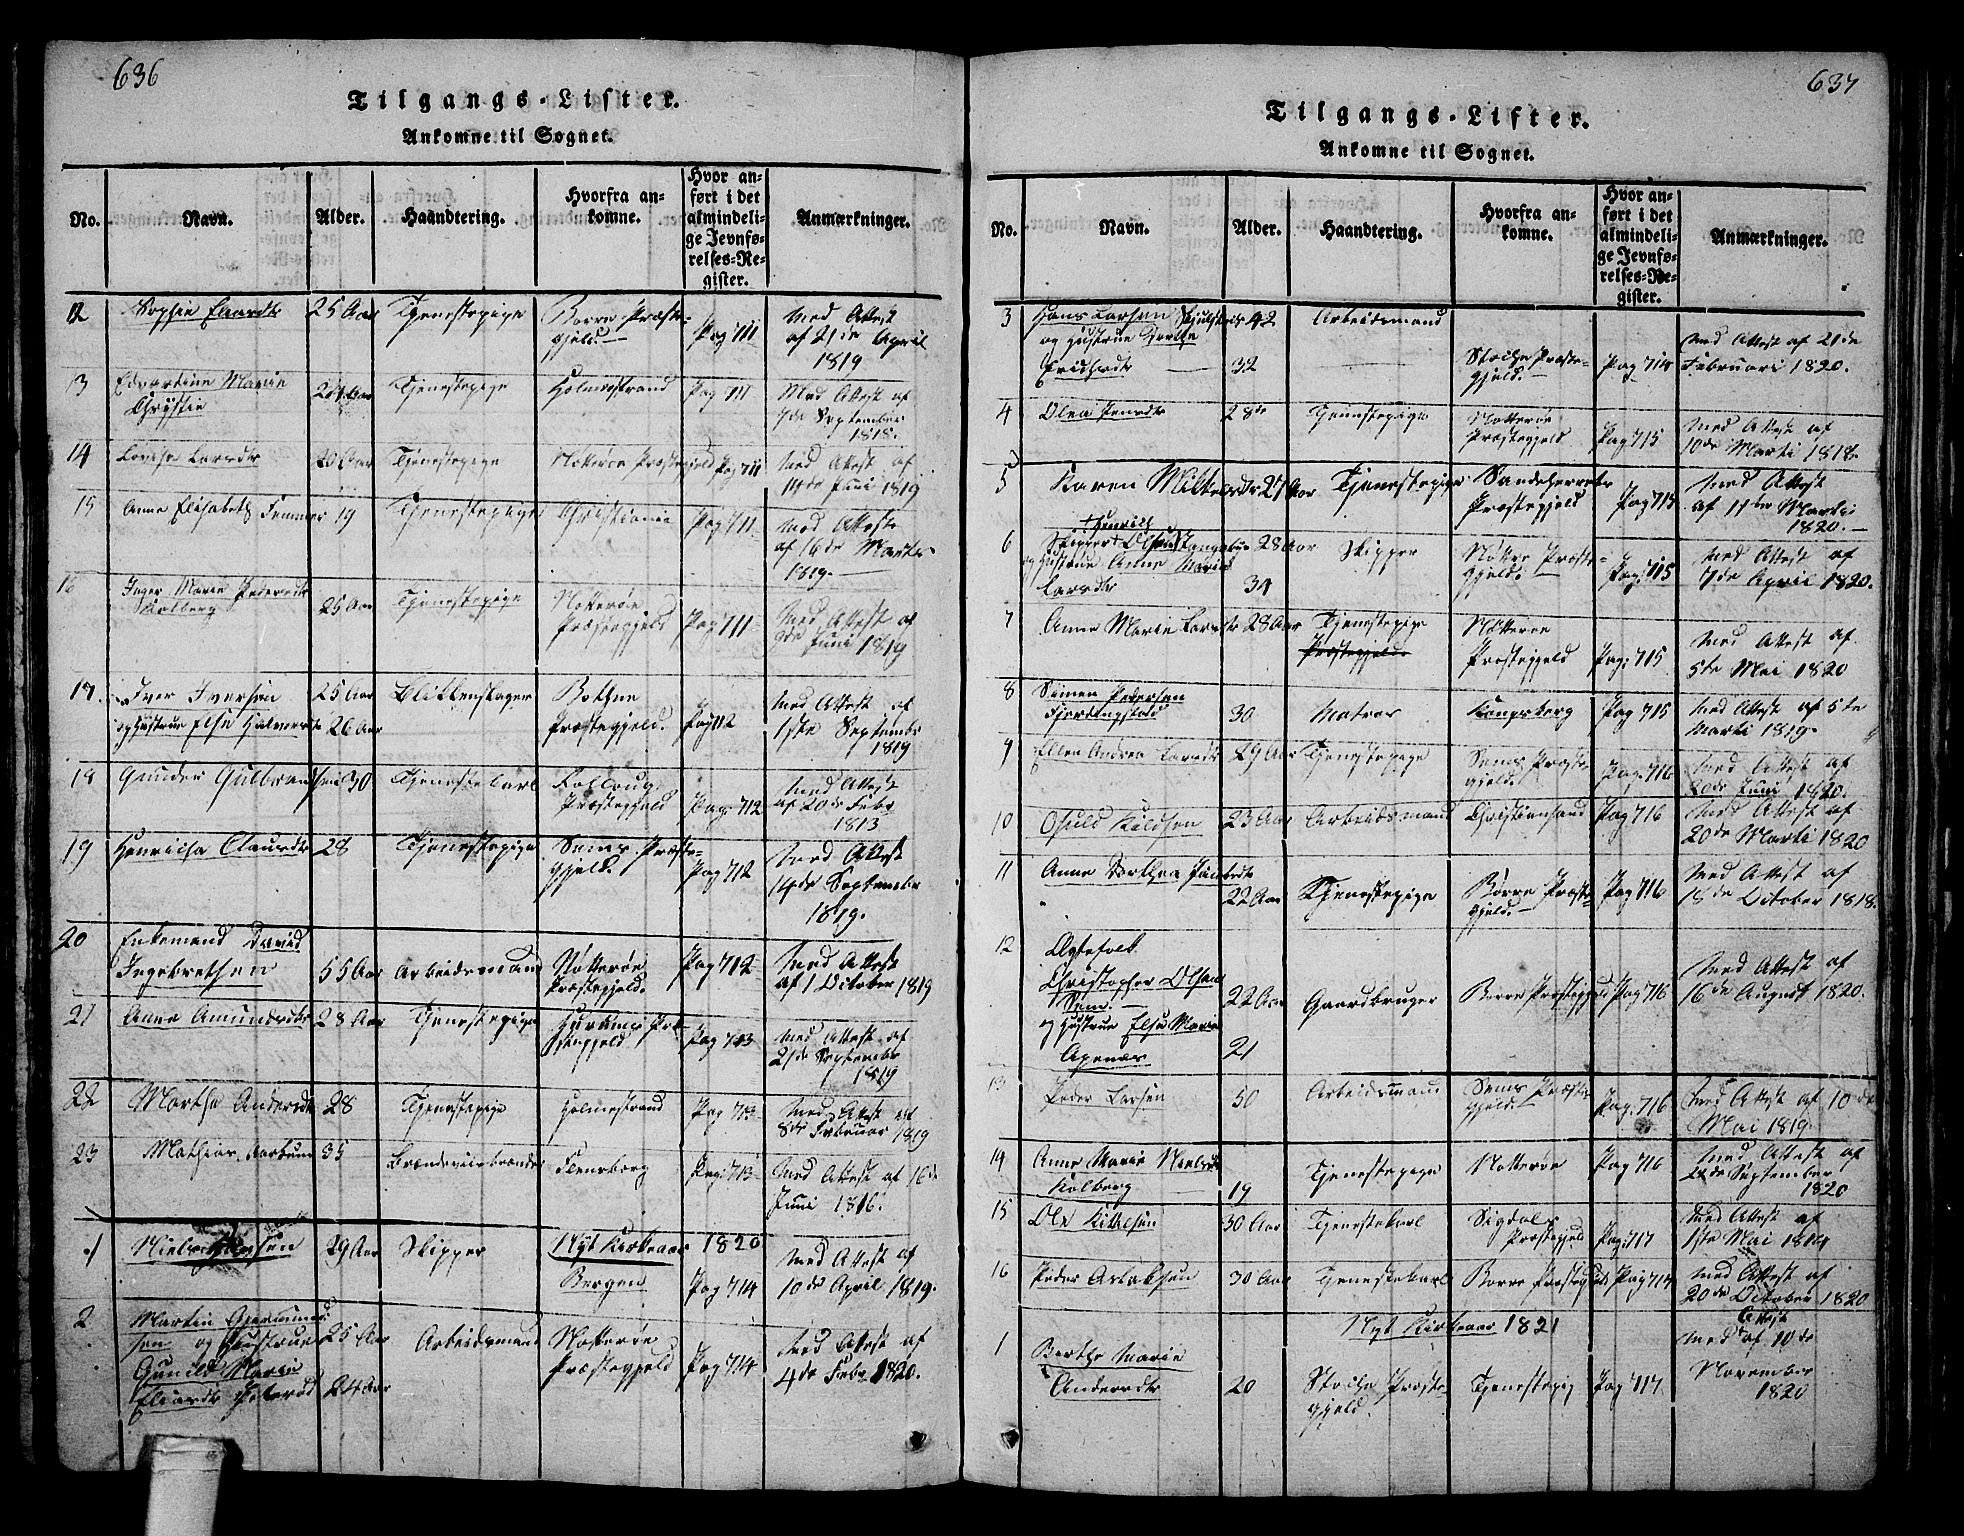 636
Tilgangs-Lister.
Ankomne til Sognet.
No. Navn. Alder. Haandtering. Hvorfra ankomne. Hvor anført i det almindelige Jevnførelses-Register. Anmærkninger.
12 Sophie Elardtr 25 Aar Tjenestepige Borre Præstegjeld. Pag 711 Med Attest af 21de April 1819
13 Edvardine Marie Chrystie 24 Aar Tjenestepige Holmestrand Pag 711 Med Attest af 7de September 1818.
14 Larsdtr 20 Aar Tjenestepige Nøtterøe Præstegjeld Pag 711 Med Attest af 14de Juni 1819
15 Anne Elisabeth Femmer 19 Tjenestepige Christiania Pag 711 Med Attest af 16de Martz 1819.
16 Inger Marie Pedersdtr Kolberg 25 Aar Tjenestepige Notterøe Præstegjeld Pag 711 Med Attest af 9de Juni 1819
17. Iver Iversen 25 Aar Blikkenslager Bothne Præstegjeld. Pag 712 Med Attest af 1ste Septembr 1819
og Hustrue Else Halvorsdtr 26 Aar
18 Gunder Gulbrandsen 30 Tjenestekarl Præstegjeld Pag. 712 Med Attest af 20de Febr 1813
19 Henricha Clausdtr 28 Tjenestepige Sems Præstegjeld. Pag 712 Med Attest 14de Septembr 1819.
20 Enkemand David Ingebrethsen 55 Aar Arbeidsmand Nøtterøe Præstegjeld. Pag 712 Med Attest af 1 October 1819
21 Anne Amundsdtr 28 Aar Tjenestepige Pag 713 Med Attest af 21de Septembr 1819
22 Marthe Andersdtr 28 Tjenestepige Holmestrand Pag 713 Med Attest af 8de Februar 1819
23 Mathias Aarbum 35 Brændeviinbrænder Flensborg Pag: 713 Med Attest af 16de Juni 1816.
Nyt Kirkeaar 1820
1 Niels Hansen 29 Aar Skipper Bergen Pag 714 Med Attest af 10de April 1819.
2 Martin Gjermundsen og Hustrue 25 Aar Arbeidsmand Notterøe Præstegjeld Pag 714 Med Attest af 4de Febr. 1820.
Gunild Marie Elardtr 24 Aar
637
Tilgangs-Lister.
Ankomne til Sognet.
No. Navn. Alder. Haandtering. Hvorfra ankomne. Hvor anført i det almindelige Jevnførelses-Register. Anmærkninger.
3 Hans Larsen 42 Arbeidsmand
og Hustrue Dorthe 32 Stokke Præstegjeld. Pag 714 Med Attest af 21de Februari 1820.
4 Olea Jensdtr 28de Tjenestepige Notterøe Præstegjeld Pag 715 Med Attest af 10de Marti 1818
5 Karen Mikkelsdtr 27 Aar Tjenestepige Sandeherreds Præstegjeld Pag 715 Med Attest af 11te Martii 1820.
6 Skipper Henrich Olsen 28 Aar Skipper Nøtter Præstegjeld. Pag: 715 Med Attest af 7de April 1820.
og Hustrue Anne Marie Larsdtr 34
7 Anne Marie Larsdtr 28 Aar Tjenestepige Præstegjeld. Nøtterøe Præstegjeld Pag: 715 Med Attest af 5te Mai 1820
8 Simen Pedersen Fjerdingstad 30 Matros Kongsberg Pag 715 Med Attest af 5te Marti 1819.
9 Ellen Andrea Larsdtr 29 Aar Tjenestepige Sems Præstegjeld. Pag. 716 Med Attest af 20de Juni 1820.
10 Osuld Kildsen 23 Aar Arbeidsmand Christiansand Pag 716 Med Attest af 20de Marti 1820
11 Anne Dorthea 22 Aar Tjenestepige Børre Præstegjeld. Pag 716 Med Attest af 18de October 1818.
12 Ægtefolk Christopher Olsen 22 Aar Gaardbruger Borre Præstegjeld Pag 716 Med Attest af 16de August 1820.
og Hustrue Else Marie Apenæs 21
13 Peder Larsen 50 Arbeidsmand Sems Præstegjeld. Pag: 716 Med Attest af 10de Mai 1819.
14 Anne Marie Nielsdtr Kolberg 19 Tjenestepige Notterøe Pag 716 Med Attest af September 1820
15 Ole Kittelsen 30 Aar Tjenestekarl Sigdals Præstegjeld Pag: 717 Med Attest af 1ste Mai 1814
16 Peder Aslaksen 30 Aar Tjenestekarl Borre Præstegjeld Pag 717 Med Attest af 20de October 1820
Nyt Kirkeaar 1821
1 Berthe Marie Andersdtr 20 Stokke Præstegjeld Tjenestepig Pag 717. Med Attest af 10de November 1820